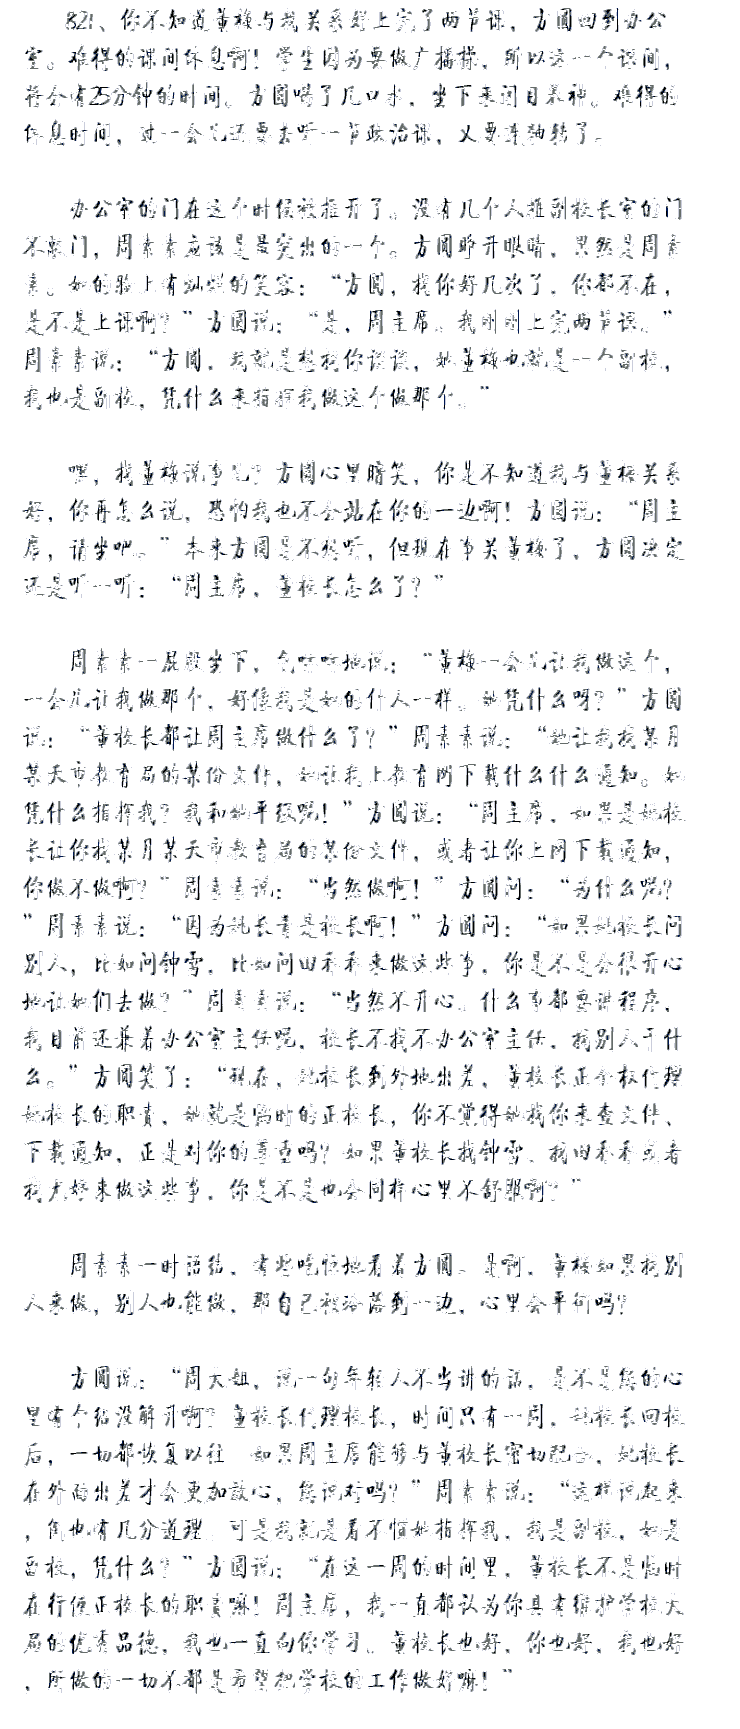 821、你不知道董梅与我关系好上完了两节课，方圆回到办公
室。难得的课间休息啊！学生因为要做广播操，所以这一个课间，
将会有25分钟的时间。方圆喝了几口水，坐下来闭目养神。难得的
休息时间，过一会儿还要去听一节政治课，又要连轴转了。
办公室的门在这个时候被推开了。没有几个人推副校长室的门
不敲门，周素素应该是最突出的一个。方圆睁开眼睛，果然是周素
素。她的脸上有灿烂的笑容：“方圆，找你好几次了，你都不在，
是不是上课啊？”方圆说：“是，周主席。我刚刚上完两节课。”
周素素说：“方圆，我就是想找你谈谈，她董梅也就是一个副校，
我也是副校，凭什么来指挥我做这个做那个。”
嘿，找董梅说事儿？方圆心里暗笑，你是不知道我与董梅关系
好，你再怎么说，恐怕我也不会站在你的一边啊！方圆说：“周主
席，请坐吧。”本来方圆是不想听，但现在事关董梅了，方圆决定
还是听一听：“周主席，董校长怎么了？”
周素素一屁股坐下，气呼呼地说：“董梅一会儿让我做这个，
一会儿让我做那个，好像我是她的什人一样。她凭什么呀？”方圆
说：“董校长都让周主席做什么了？”周素素说：“她让我找某月
某天市教育局的某份文件，她让我上教育网下载什么什么通知。她
凭什么指挥我？我和她平级呢！”方圆说：“周主席，如果是姚校
长让你找某月某天市教育局的某份文件，或者让你上网下载通知，
你做不做啊？”周素素说：“当然做啊！”方圆问：“为什么呢？
”周素素说：“因为姚长青是校长啊！”方圆问：“如果姚校长问
别人，比如问钟雪，比如问田秀秀来做这些事，你是不是会很开心
地让她们去做？”周素素说：“当然不开心。什么事都要讲程序，
我目前还兼着办公室主任呢，校长不找不办公室主任，找别人干什
么。”方圆笑了：“现在，姚校长到外地出差，董校长正全权代理
姚校长的职责，她就是临时的正校长，你不觉得她找你来查文件、
下载通知，正是对你的尊重吗？如果董校长找钟雪、找田秀秀或者
找尤婷来做这些事，你是不是也会同样心里不舒服啊？”
周素素一时语结，有些吃惊地看着方圆。是啊，董梅如果找别
人来做，别人也能做，那自己被冷落到一边，心里会平衡吗？
方圆说：“周大姐，说一句年轻人不当讲的话，是不是您的心
里有个结没解开啊？董校长代理校长，时间只有一周，姚校长回校
后，一切都恢复以往 如果周主席能够与董校长密切配合，姚校长
在外面出差才会更加放心，您说对吗？”周素素说：“这样说起来
，倒也有几分道理。可是我就是看不惯她指挥我，我是副校，她是
副校，凭什么？”方圆说：“在这一周的时间里，董校长不是临时
在行使正校长的职责嘛！周主席，我一直都认为你具有维护学校大
局的优秀品德，我也一直向你学习。董校长也好，你也好，我也好
，所做的一切不都是希望把学校的工作做好嘛！”